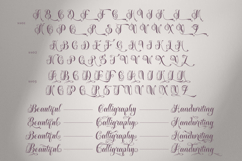 A B C D E F G H I J K L M
N O P Q R S T U V W X Y Z
A B C D E F G H I J K L M
N O P Q R S T U V W X Y Z
A B C D E F G H I J K L M
N O P Q R S T U V W X Y Z
Beautiful Calligraphy Handwriting
Beautiful Calligraphy Handwriting
Beautiful Calligraphy Handwriting
Beautiful Calligraphy Handwriting